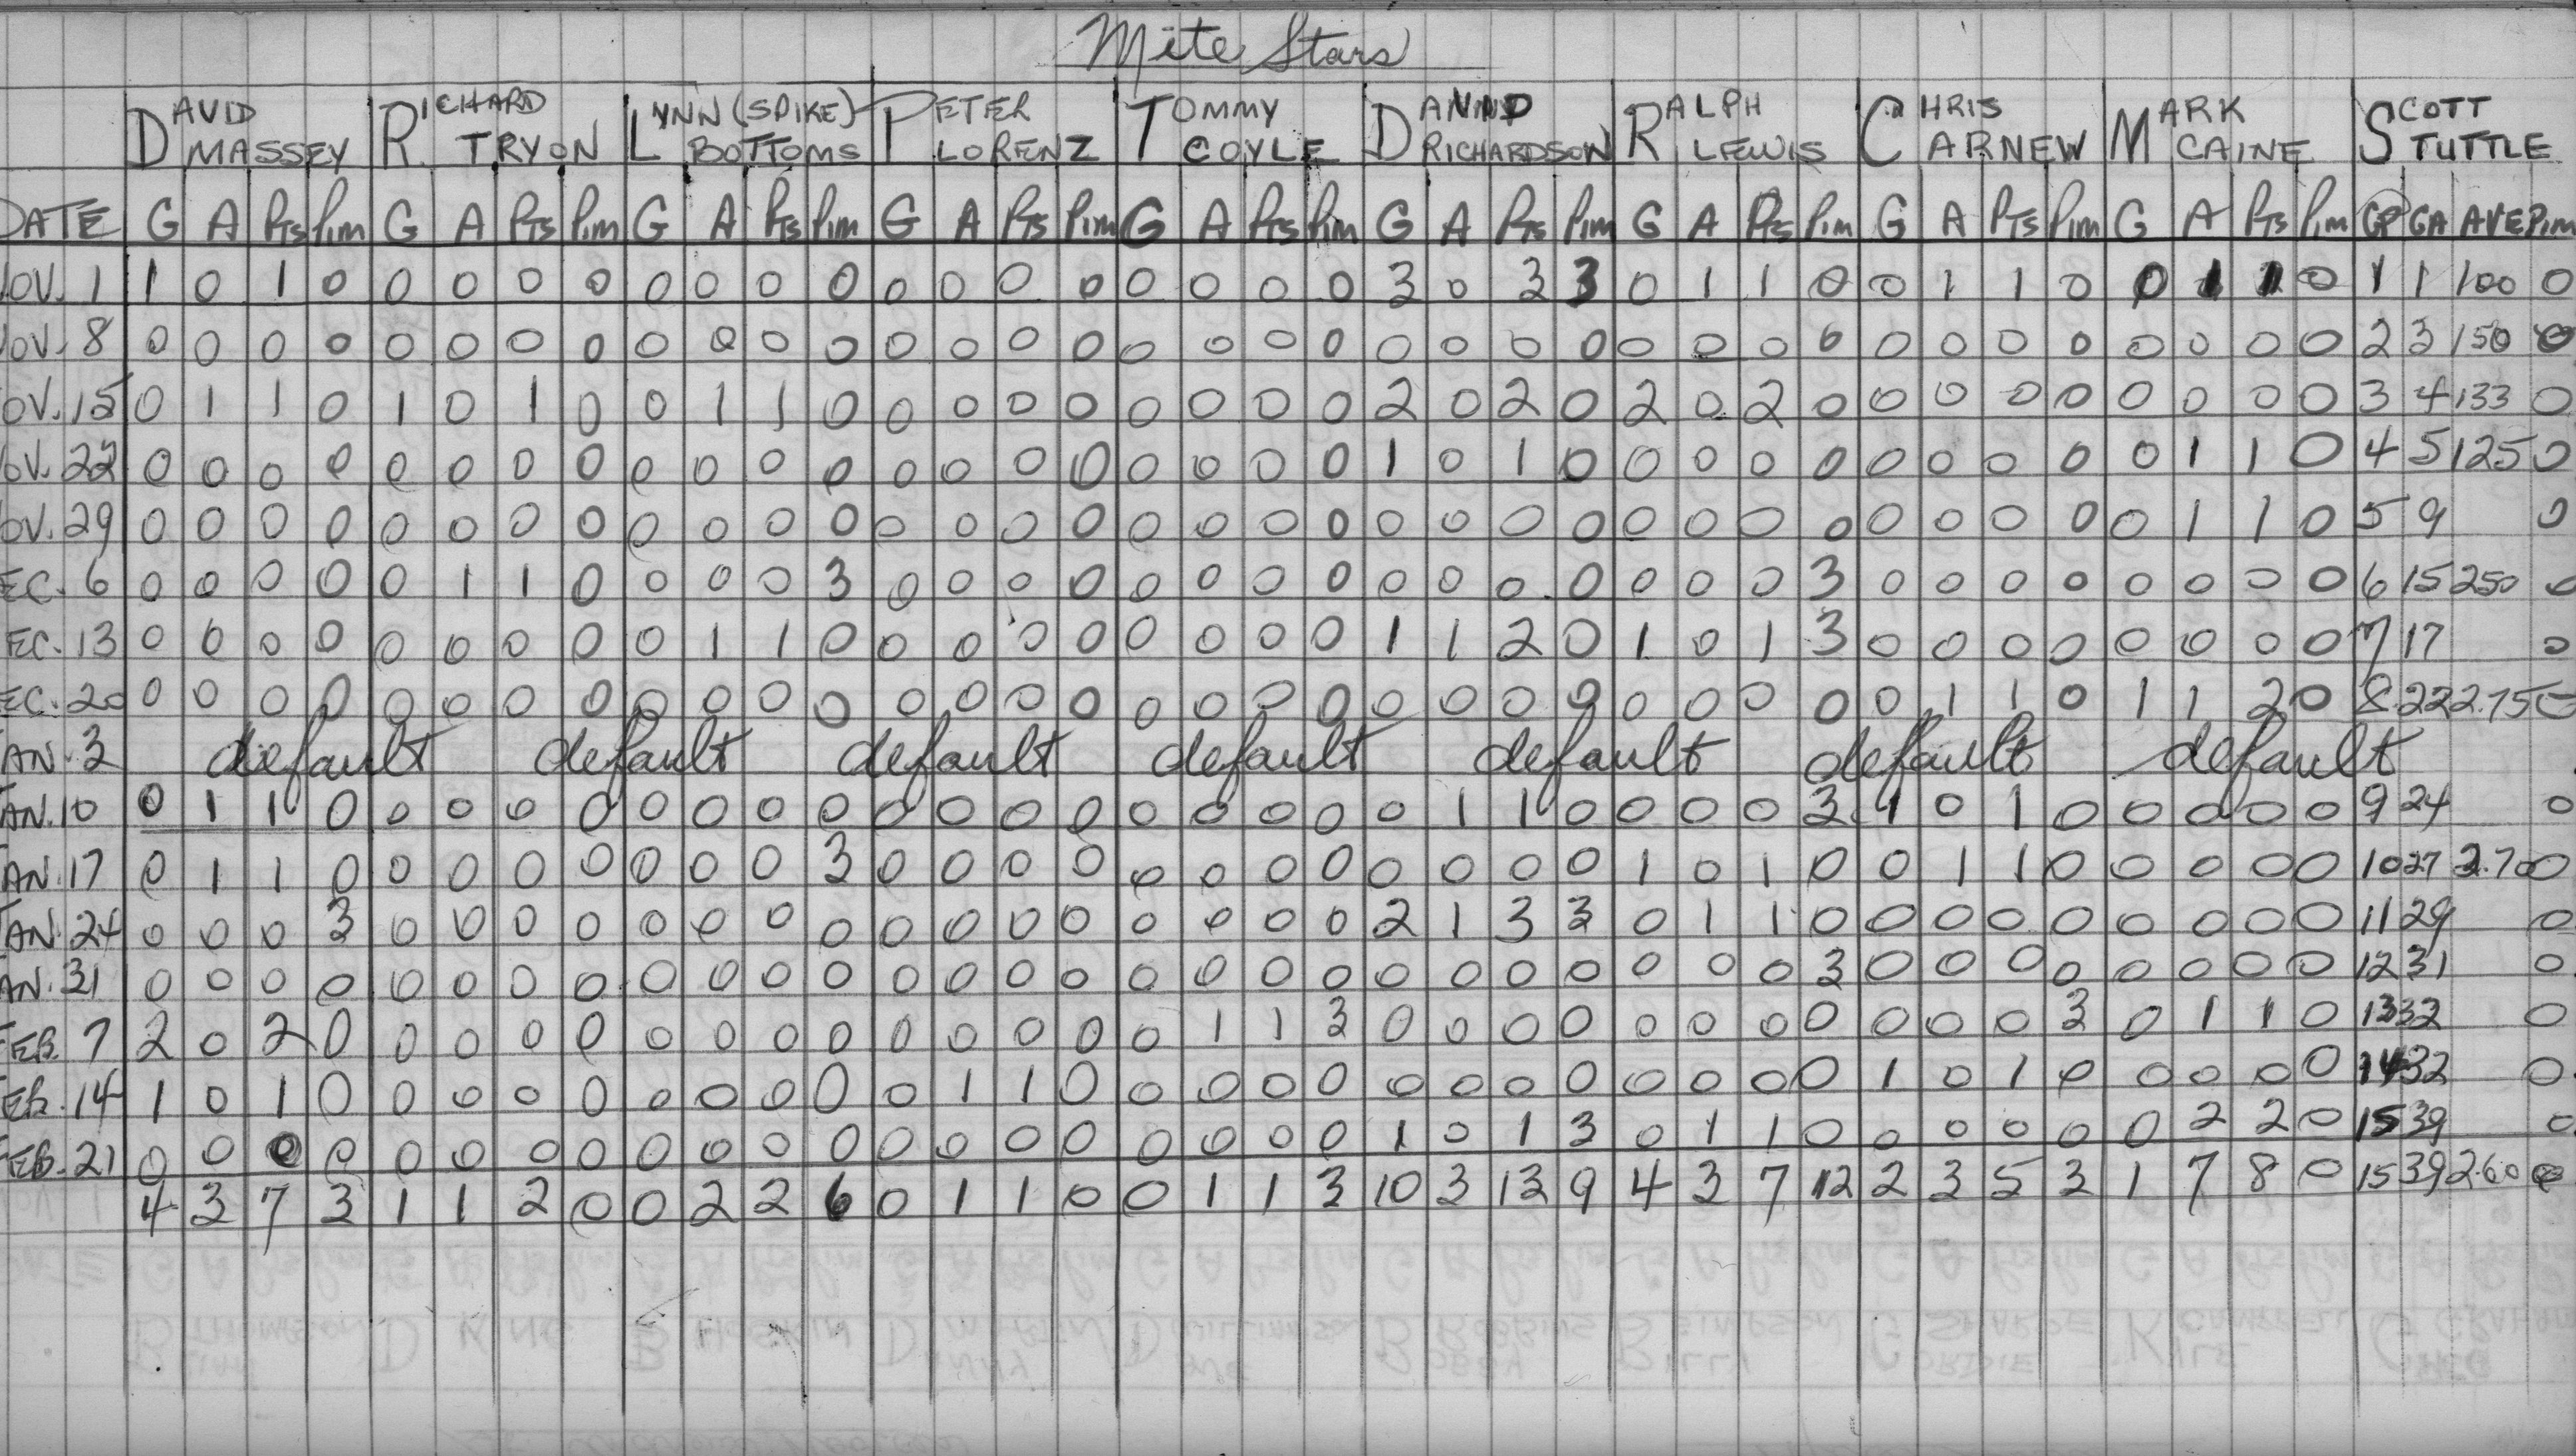 Mite Stars
DAVID MASSEY RICHARD TRYON LYNN (SPIKE) BOTTOMS PETER LORENZ TOMMY COYLE DANNY RICHARDSON RALPH LEWIS CHRIS CARNEW MARK MCAINE SCOTT STUTTLE
DATE G A Pts Pim G A Pts Pim G A Pts Pim G A Pts Pim G A Pts Pim G A Pts Pim G A Pts Pim G A Pts Pim G A Pts Pim GP GA AVE Pim
OV. 1 1 0 1 0 0 0 0 0 0 0 0 0 0 0 0 0 0 0 0 0 3 0 3 3 0 1 1 0 0 1 1 0 0 1 1 0 1 1 100 0
OV. 8 0 0 0 0 0 0 0 0 0 0 0 0 0 0 0 0 0 0 0 0 0 0 0 0 0 0 0 0 0 0 0 0 0 0 0 0 2 3 150 0
OV. 15 0 1 1 0 1 0 1 0 0 1 1 0 0 0 0 0 0 0 0 0 2 0 2 0 2 0 2 0 0 0 0 0 0 0 0 0 3 4 133 0
OV. 22 0 0 0 0 0 0 0 0 0 0 0 0 0 0 0 0 0 0 0 0 1 0 1 0 0 0 0 0 0 0 0 0 0 1 1 0 4 5 125 0
OV. 29 0 0 0 0 0 0 0 0 0 0 0 0 0 0 0 0 0 0 0 0 0 0 0 0 0 0 0 0 0 0 0 0 0 1 1 0 5 9 0
EC. 6 0 0 0 0 0 1 1 0 0 0 0 3 0 0 0 0 0 0 0 0 0 0 0 0 0 0 0 3 0 0 0 0 0 0 0 0 6 15 250 0
EC. 13 0 0 0 0 0 0 0 0 0 1 1 0 0 0 0 0 0 0 0 0 1 1 2 0 1 0 1 3 0 0 0 0 0 0 0 0 7 17 0
EC. 20 0 0 0 0 0 0 0 0 0 0 0 0 0 0 0 0 0 0 0 0 0 0 0 0 0 0 0 0 0 1 1 0 1 1 2 0 8 22 2.75 0
AN. 3 default default default default default default default
AN. 10 0 1 1 0 0 0 0 0 0 0 0 0 0 0 0 0 0 0 0 0 0 1 1 0 0 0 0 3 1 0 1 0 0 0 0 0 9 24 0
AN. 17 0 1 1 0 0 0 0 0 0 0 0 3 0 0 0 0 0 0 0 0 0 0 0 0 1 0 1 0 0 1 1 0 0 0 0 0 10 27 2.70 0
AN. 24 0 0 0 3 0 0 0 0 0 0 0 0 0 0 0 0 0 0 0 0 2 1 3 3 0 1 1 0 0 0 0 0 0 0 0 0 11 29 0
AN. 31 0 0 0 0 0 0 0 0 0 0 0 0 0 0 0 0 0 0 0 0 0 0 0 0 0 0 0 3 0 0 0 0 0 0 0 0 12 31 0
FEB. 7 2 0 2 0 0 0 0 0 0 0 0 0 0 0 0 0 0 1 1 3 0 0 0 0 0 0 0 0 0 0 0 3 0 1 1 0 13 32 0
FEB. 14 1 0 1 0 0 0 0 0 0 0 0 0 0 1 1 0 0 0 0 0 0 0 0 0 0 0 0 0 1 0 1 0 0 0 0 0 14 32 0
FEB. 21 0 0 0 0 0 0 0 0 0 0 0 0 0 0 0 0 0 0 0 0 1 0 1 3 0 1 1 0 0 0 0 0 0 2 2 0 15 39 0
4 3 7 3 1 1 2 0 0 2 2 6 0 1 1 0 0 1 1 3 10 3 13 9 4 3 7 12 2 3 5 3 1 7 8 0 15 39 2.60 0